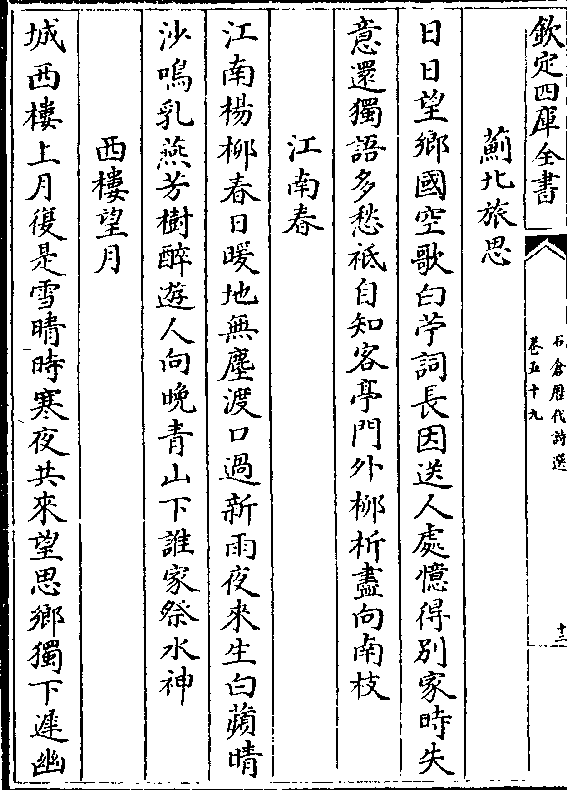 欽定四庫全書
石倉歴代詩選
卷五十九
十三
薊北旅思
日日望鄉國空歌白苧詞長因送人處憶得別家時失
意還獨語多愁祗自知客亭門外柳折盡向南枝
江南春
江南楊柳春日暖地無塵渡口過新雨夜來生白蘋晴
沙鳴乳燕芳樹醉遊人向晚青山下誰家祭水神
西樓望月
城西樓上月復是雪晴時寒夜共來望思鄉獨下遲幽